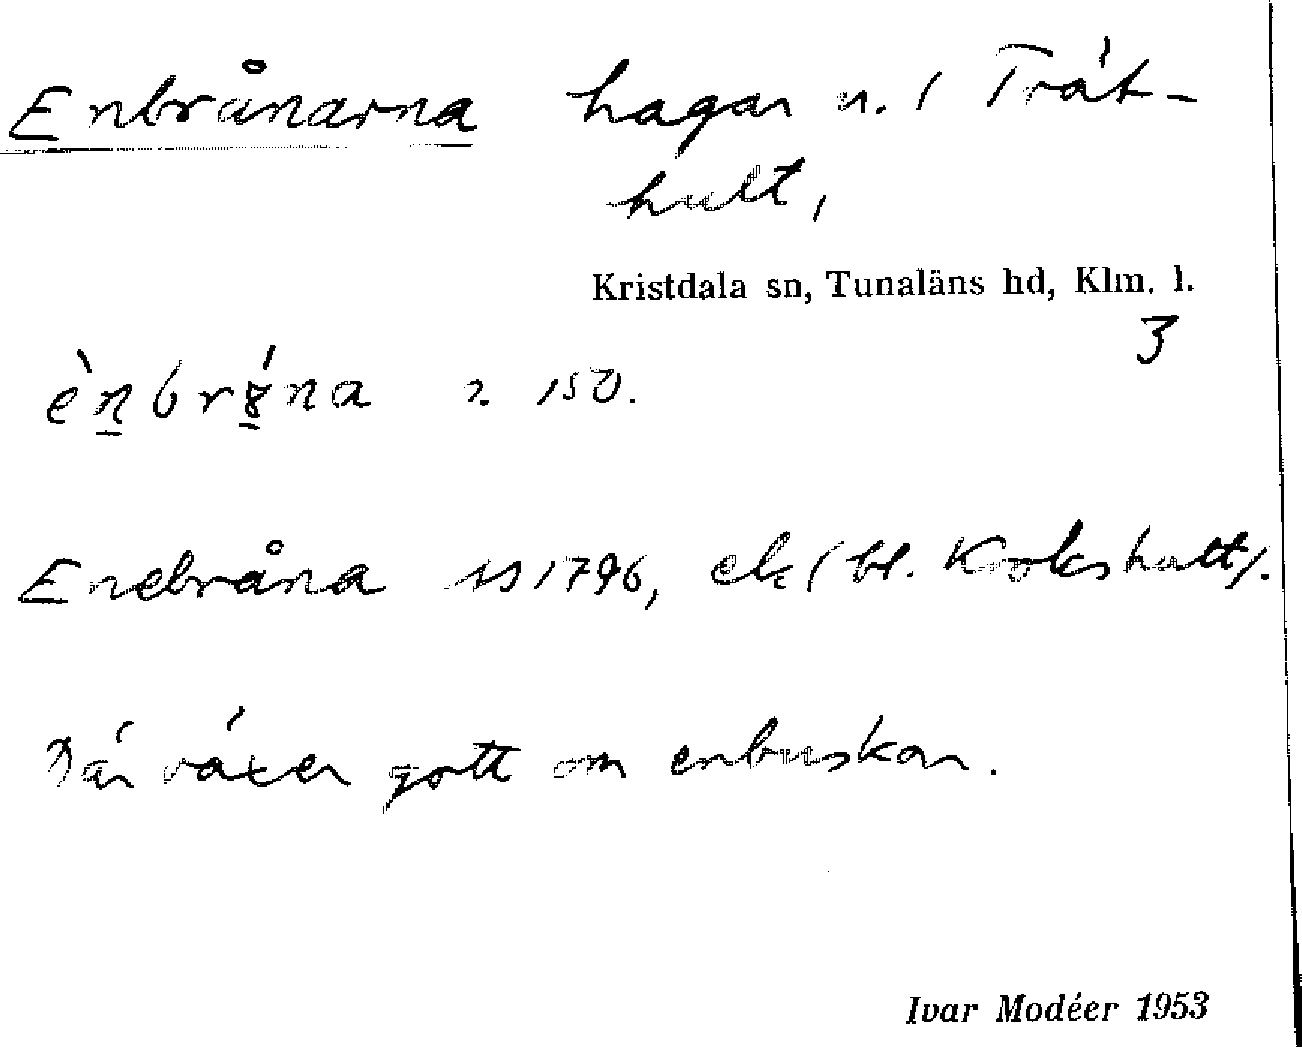 Enbrånarna hagar n. / Trät-
hult,
Kristdala sn, Tunaläns hd, Klm. l.
3
150.
Enebråna 1796, ek (bl. Krokshult).
Där växer gott om enbuskar.
Ivar Modéer 1953